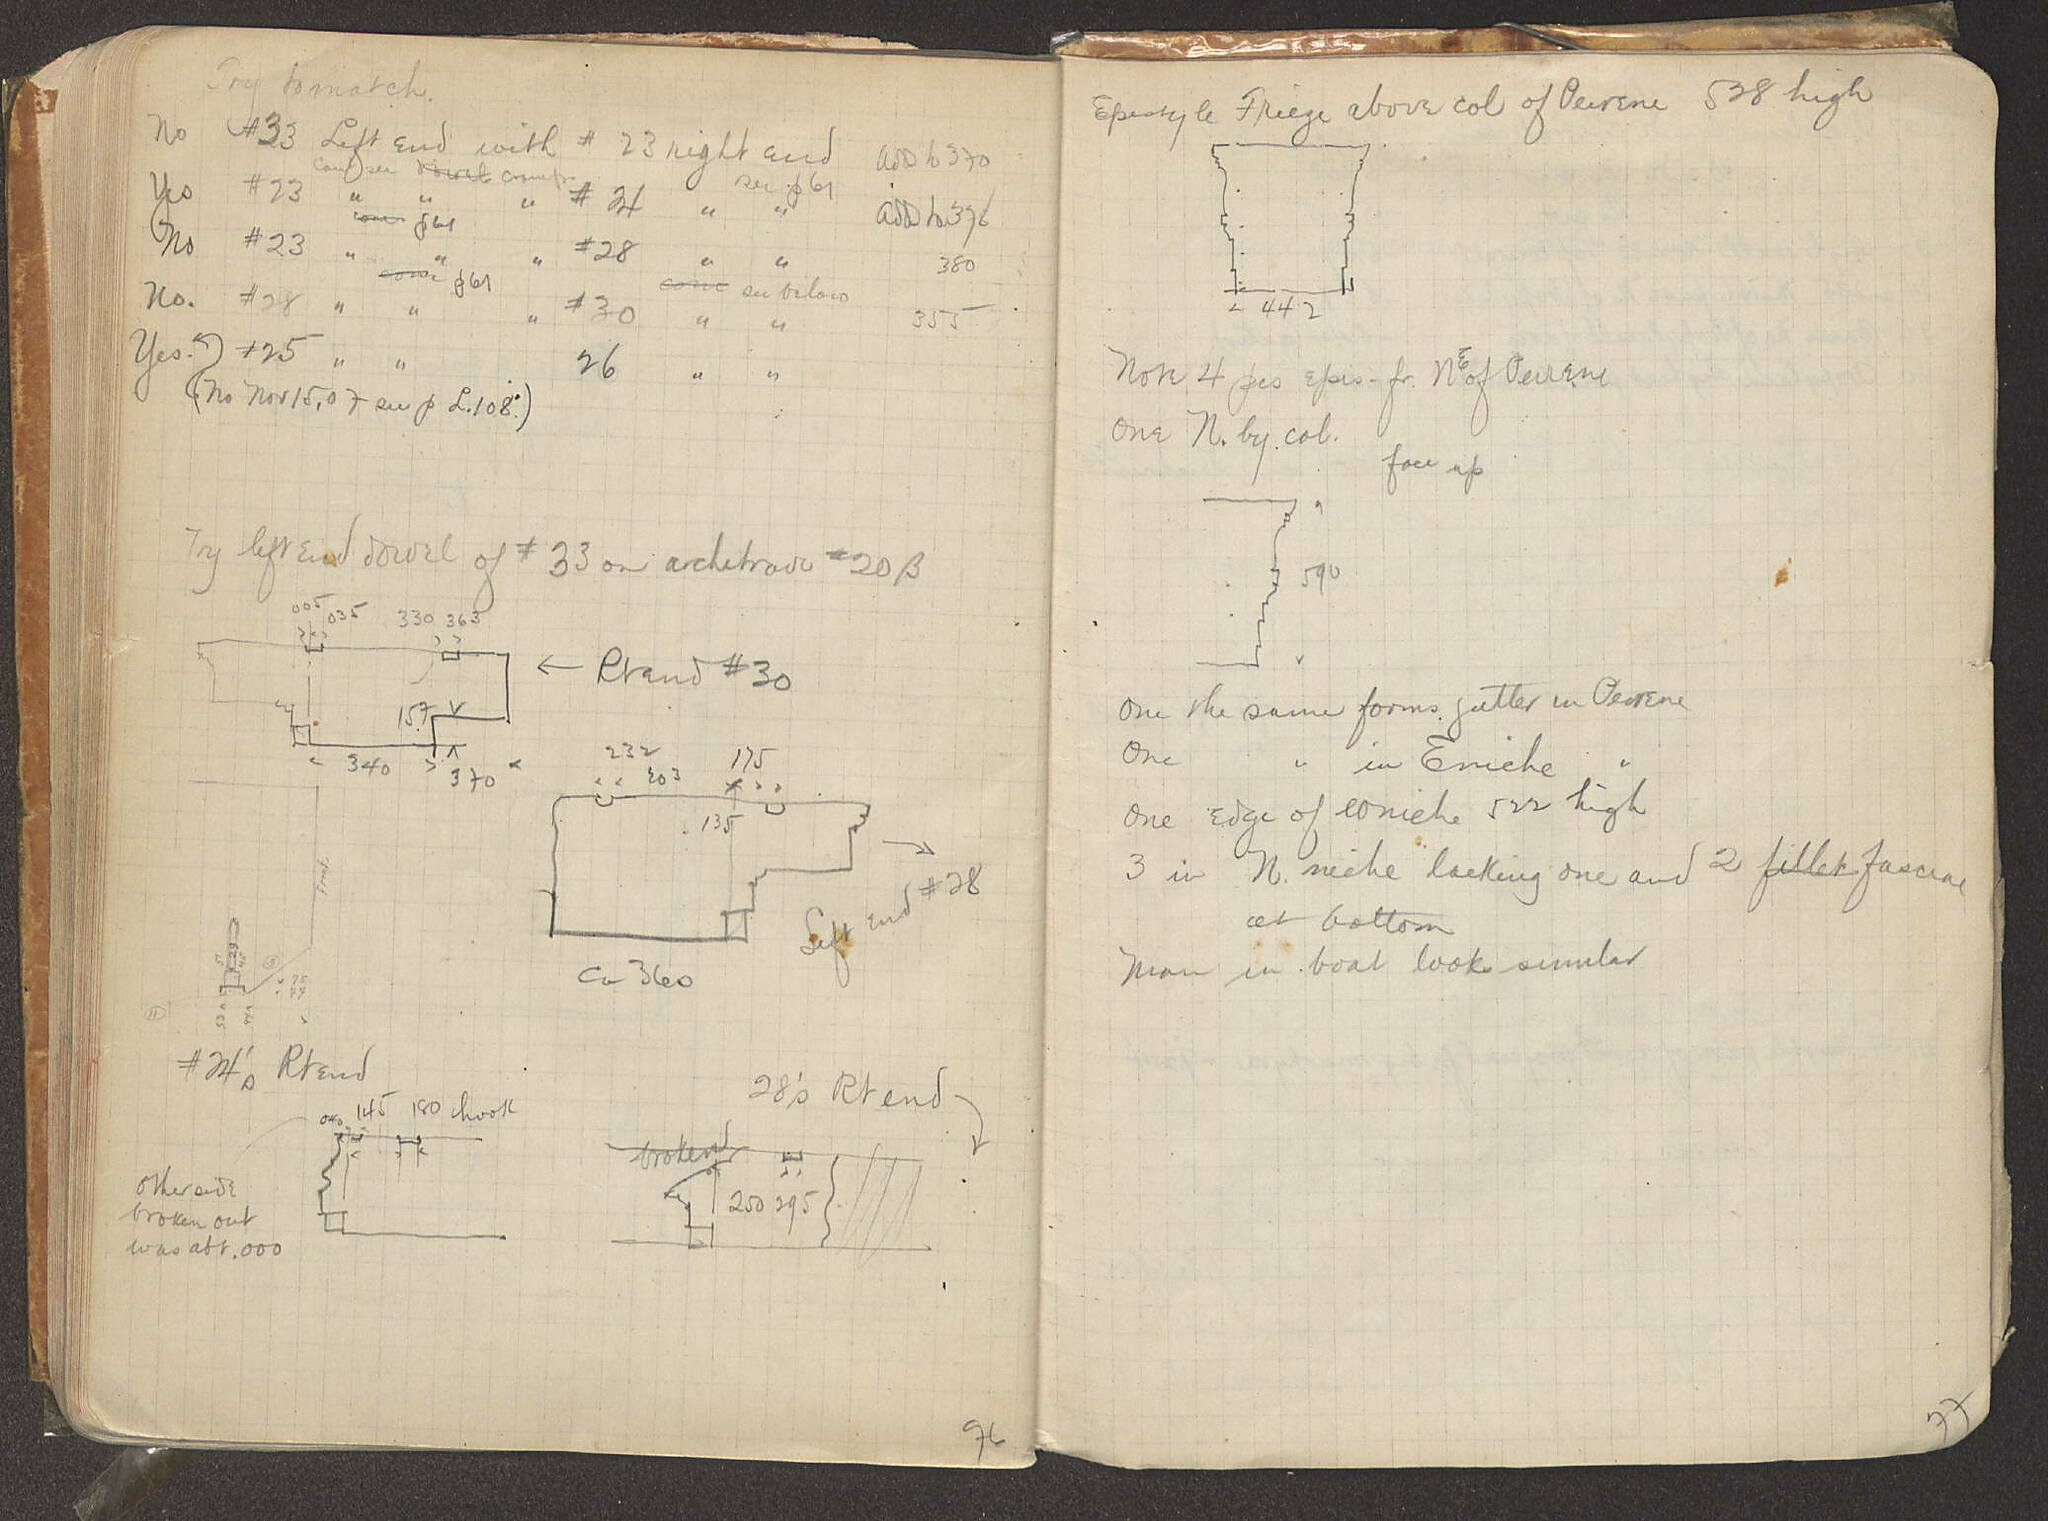 Try to match.
No #33 Left End with #23 right end add to 370
see p 61
Yes #23 " " " #24 " " add to 396
p 61
No #23 " " " #28 " " 380
p 61 see below
No. #28 " " " #30 " " 355
Yes. #25 " " 26 " "
(No Nov 15, 07 see p L.108.)
Try left end dowel of #33 on architrave #20 B
005 035 330 363
← Rt end #30
157
340 370
232 203 175
135
Left end #28
Ca 360
Front
#24's Rt end
040 145 180 chook
other side
broken out
was abt .000
28's Rt end
broken
250 295
96
Epistyle Frieze above col of Peirene 528 high
442
Note 4 pcs epis-fr. NE of Peirene
One N. by col.
face up
590
One the same forms gutter in Peirene
One " in E niche "
One edge of W niche 522 high
3 in N. niche lacking one and 2 fillet fasciae
at bottom
Man in boat looks similar
97